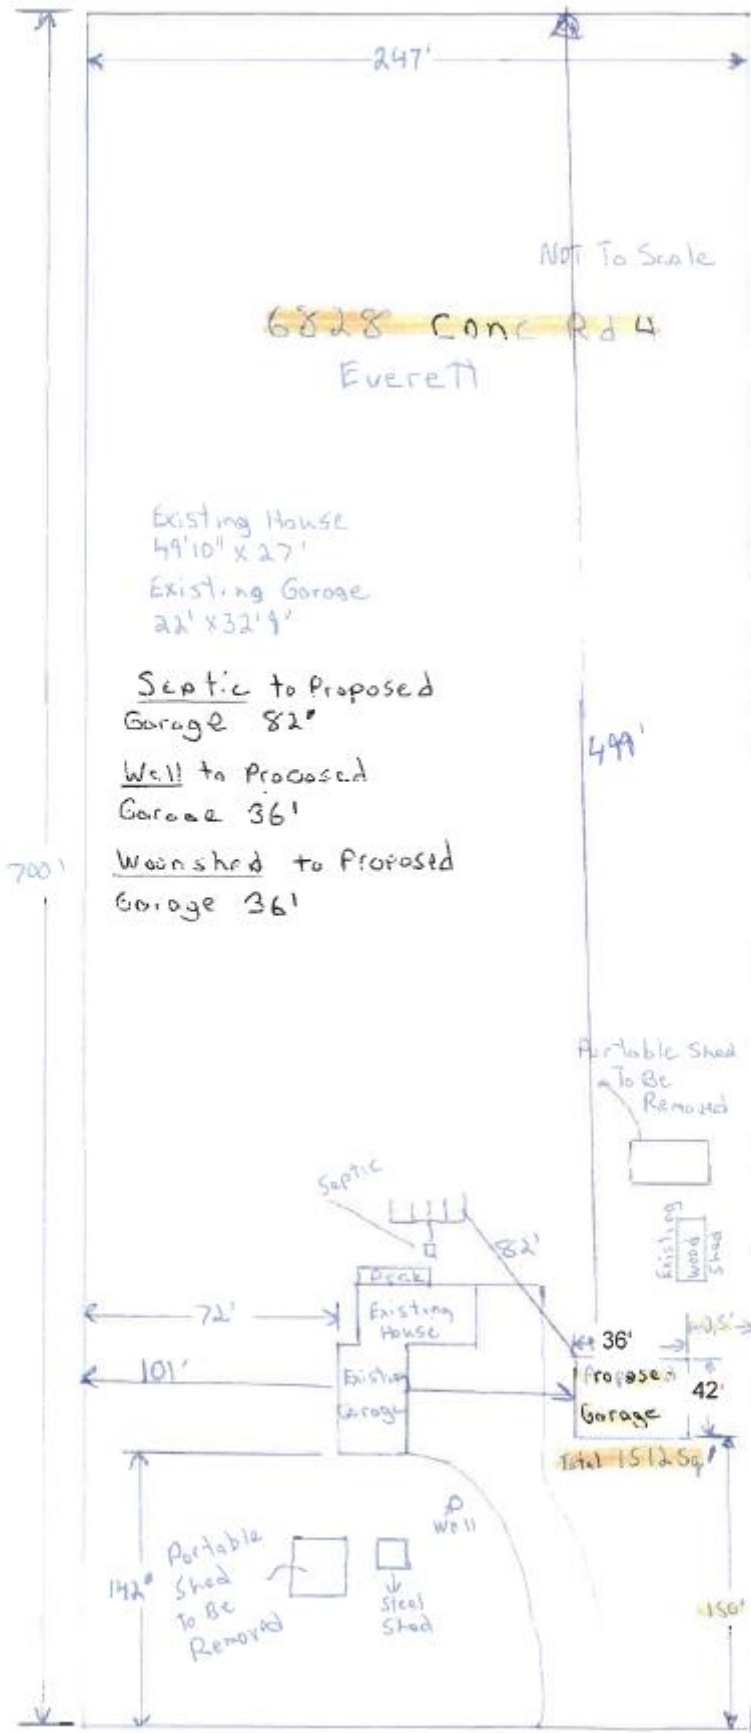 247'
NOT To Scale
6828 Conc Rd 4
Everett
Existing House
49'10" x 27'
Existing Garage
22' x 32'9'
Septic to Proposed
Garage 82'
Well to Proposed
Garage 36'
to Proposed
Garage 36'
499'
700'
Portable Shed
To Be
Removed
Septic
82'
Existing
Wood
Shed
Deck
72'
Existing
House
36'
101'
Existing
Garage
Proposed
Garage
42'
Total 1512 Sq'
Well
Portable
Shed
To Be
Removed
Steel
Shed
142'
150'